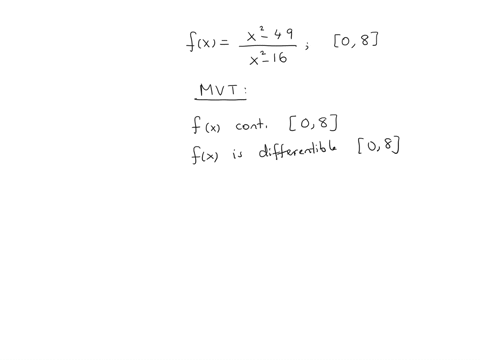 f(x) = (x² - 49)/(x² - 16) ; [0,8]
MVT:
f(x) cont. [0,8]
f(x) is differentible [0,8]